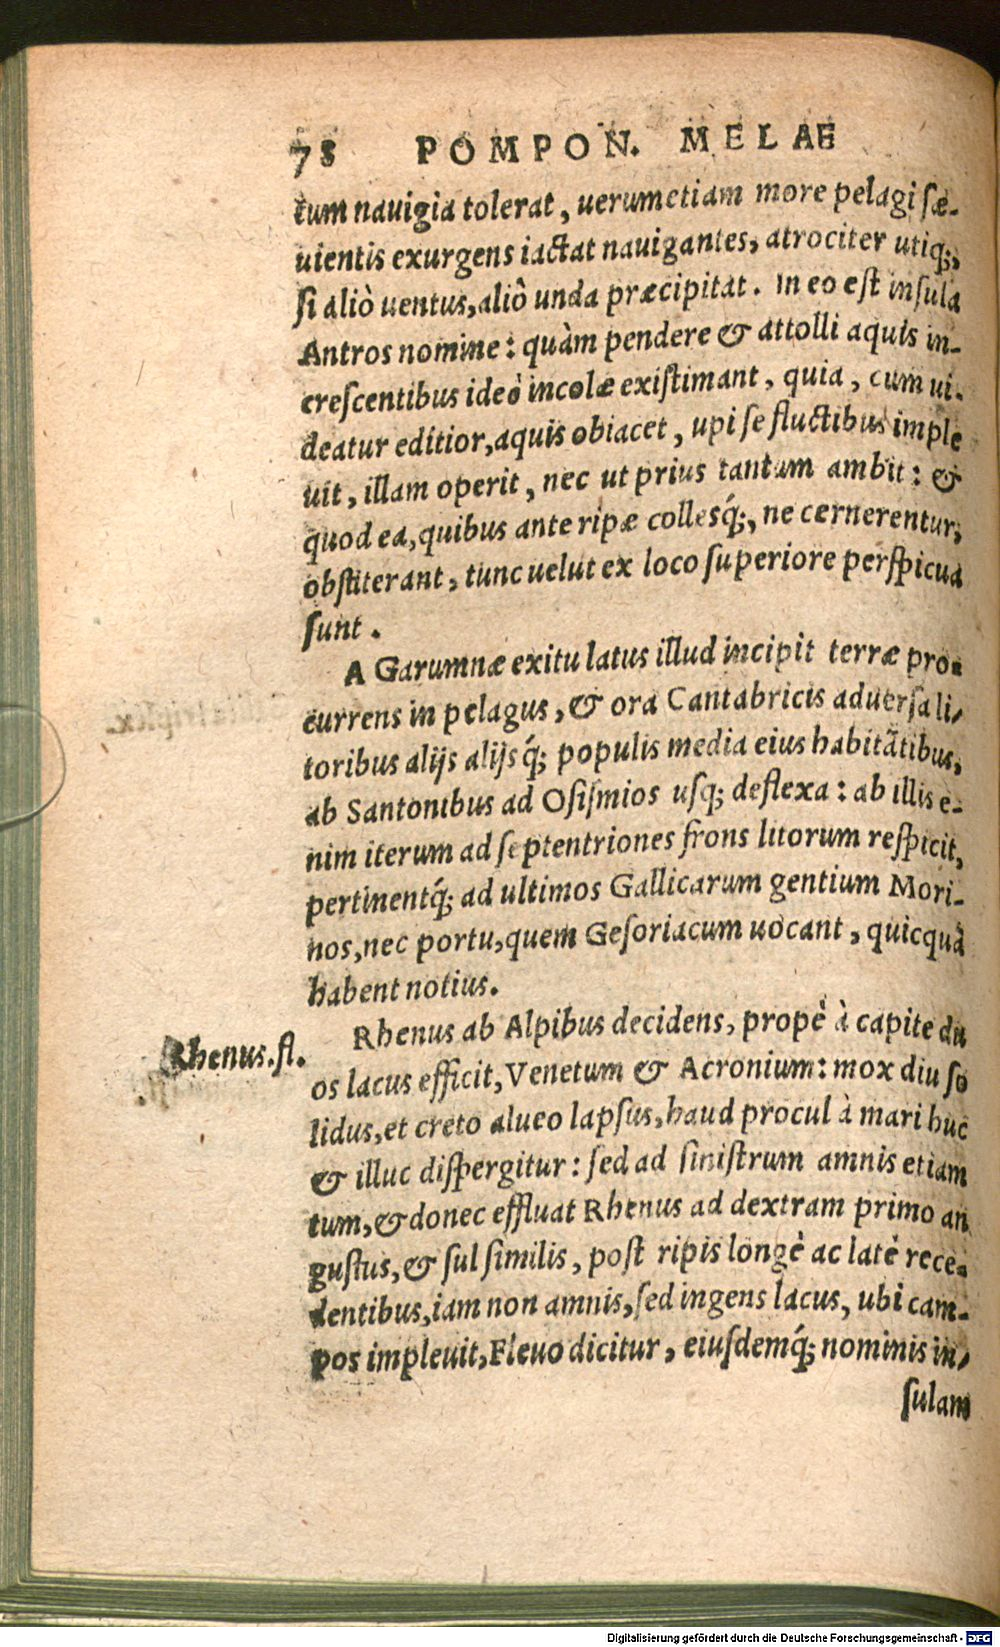 78 POMPON. MELAE
tum nauigia tolerat, uerumetiam more pelagi sæ-
uientis exurgens iactat nauigantes, atrociter utiq;,
si aliò uentus, aliô unda præcipitat. In eo est insula
Antros nomine: quàm pendere & attolli aquis in-
crescentibus ideò incolæ existimant, quia, cum ui-
deatur editior, aquis obiacet, upi se fluctibus imple
uit, illam operit, nec ut prius tantum ambit: &
quod ea, quibus ante ripæ collesq́;, ne cernerentur,
obstiterant, tunc uelut ex loco superiore perspicua
sunt.
A Garumnæ exitu latus illud incipit terræ pro-
currens in pelagus, & ora Cantabricis aduersa li-
toribus alijs alijsq́; populis media eius habitātibus,
ab Santonibus ad Osismios usq; deflexa: ab illis e-
nim iterum ad septentriones frons litorum respicit,
pertinentq́; ad ultimos Gallicarum gentium Mori-
nos, nec portu, quem Gesoriacum uocant, quicquā
habent notius.
Rhenus.fl.
Rhenus ab Alpibus decidens, propè à capite du
os lacus efficit, Venetum & Acronium: mox diu so
lidus, et creto alueo lapsus, haud procul à mari huc
& illuc dispergitur: sed ad sinistrum amnis etiam
tum, & donec effluat Rhenus ad dextram primo an
gustus, & sul similis, post ripis longè ac latè rece-
dentibus, iam non amnis, sed ingens lacus, ubi cam-
pos impleuit, Fleuo dicitur, eiusdemq́; nominis in-
sulam
Digitalisierung gefördert durch die Deutsche Forschungsgemeinschaft - DFG